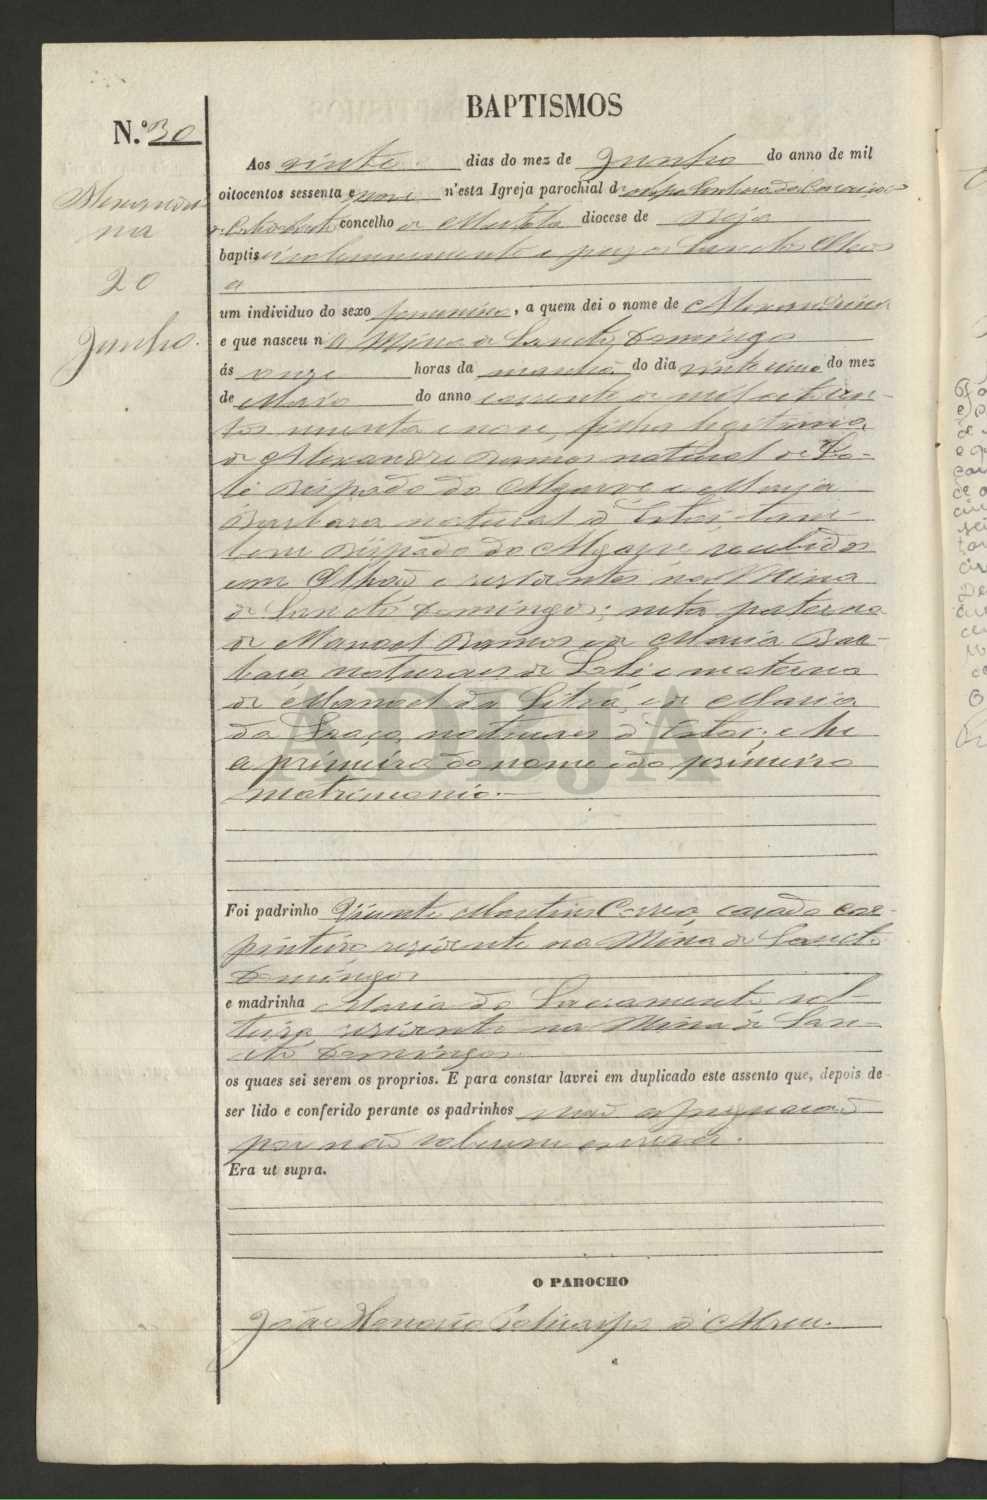 BAPTISMOS
N.º 30
Alexandri
na
20
Junho.
Aos vinte dias do mez de Junho do anno de mil
oitocentos sessenta e nove n'esta Igreja parochial de Senhora da Conceição
concelho de Mertola diocese de Beja
baptisei solemnemente e puz os Sanctos Oleos
a
um individuo do sexo femenino, a quem dei o nome de Alexandrina
e que nasceu n a Mina de Sancto Domingo
ás onze horas da manhã do dia vinte e um do mez
de Maio do anno corrente de mil oitocen-
tos sessenta e nove, filha legitima
de Alexandre Ramos natural de Lo-
lé Bispado do Algarve e Maria
Barbara natural d'Estoi, tam-
bem Bispado do Algarve recebidos
em Olhão e residentes na Mina
de Sancto Domingos; neta paterna
de Manoel Ramos e de Maria Bar-
bara naturaes de Lolé e materna
de Manoel da e de Maria
da Graça, naturaes d'Estoi; e he
a primeira do nome e do primeiro
matrimonio.
ADBJA
Foi padrinho Vicente Martins Correa, casado car-
pinteiro, residente na Mina de Sancto
Domingos
e madrinha Maria do Sacramento sol-
teira, residente na Mina de San-
cto Domingos
os quaes sei serem os proprios. E para constar lavrei em duplicado este assento que, depois de
ser lido e conferido perante os padrinhos não assignarão
por não saberem escrever.
Era ut supra.
O PAROCHO
João d'Abreu.